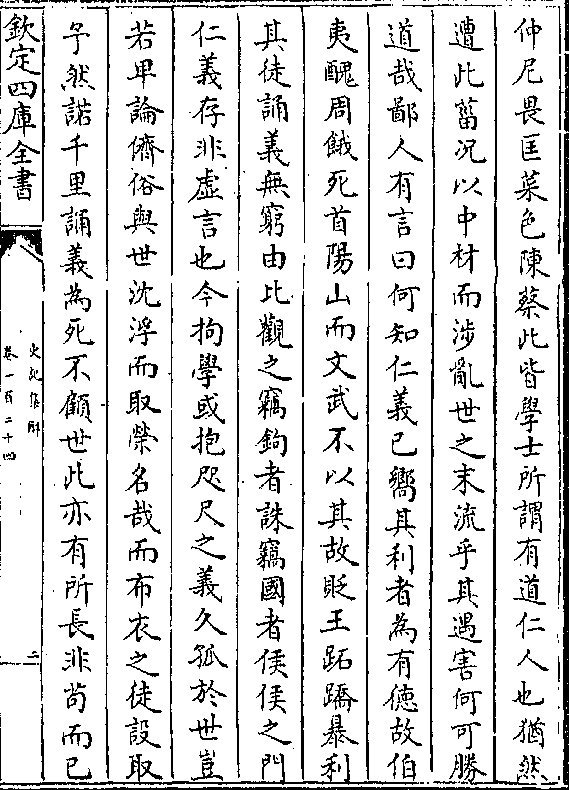 仲尼畏匡菜色陳蔡此皆學士所謂有道仁人也猶然
遭此菑况以中材而涉亂世之末流乎其遇害何可勝
道哉鄙人有言曰何知仁義已嚮其利者為有徳故伯
夷醜周餓死首陽山而文武不以其故貶王跖蹻暴利
其徒誦義無窮由比觀之竊鉤者誅竊國者侯侯之門
仁義存非虚言也今拘學或抱咫尺之義久孤於世豈
若卑論儕俗與世沈浮而取榮名哉而布衣之徒設取
予然諾千里誦義為死不顧世此亦有所長非茍而已
欽定四庫全書
史記集解
卷一百二十四
二